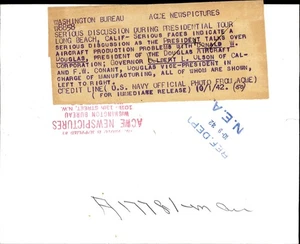 WASHINGTON BUREAU ACME NEWSPICTURES
SERIOUS DISCUSSION DURING PRESIDENTIAL TOUR
LONG BEACH, CALIF- SERIOUS FACES INDICATE A
SERIOUS DISCUSSION AS THE PRESIDENT TALKS OVER
AIRCRAFT PRODUCTION PROBLEMS WITH DONALD W.
DOUGLAS, PRESIDENT OF THE DOUGLAS AIRCRAFT
CORPORATION; GOVERNOR OLSON OF CAL-
AND F.W. CONANT, DOUGLAS VICE-PRESIDENT IN
CHARGE OF MANUFACTURING, ALL OF WHOM ARE SHOWN,
LEFT TO RIGHT.
CREDIT LINE (U.S. NAVY OFFICIAL PHOTO FROM ACME)
FOR IMMEDIATE RELEASE) (0/1/42.
ACME NEWSPICTURES
WASHINGTON BUREAU
STREET, N.W.
REF. DEPT
N.E.A.